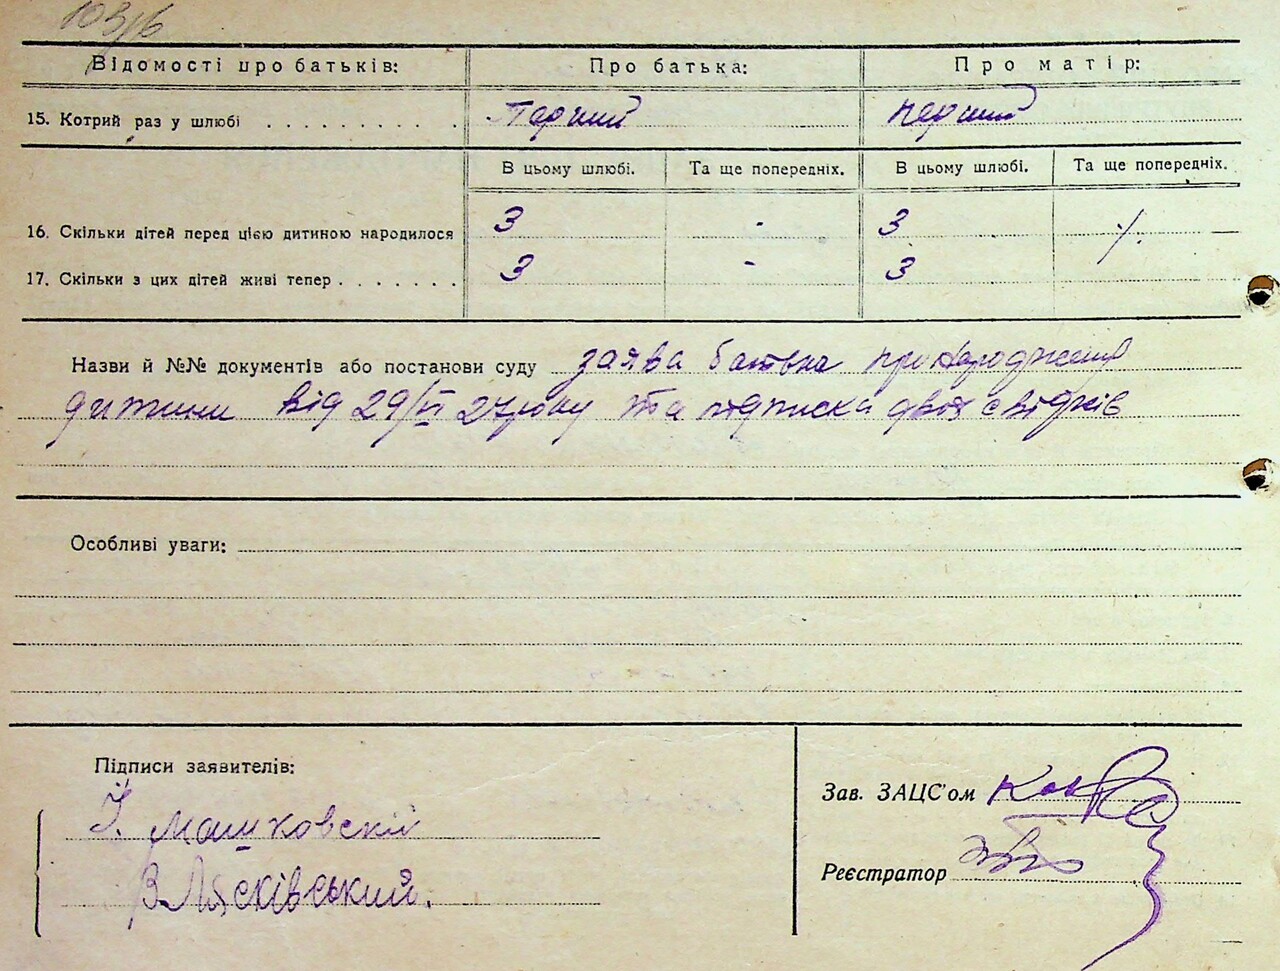 103/6
Відомості про батьків: Про батька: Про матір:
15. Котрий раз у шлюбі . . . . . . . . . . Перший перший
В цьому шлюбі. Та ще попередніх. В цьому шлюбі. Та ще попередніх.
16. Скільки дітей перед цією дитиною народилося 3 - 3 ./.
17. Скільки з цих дітей живі тепер . . . . . . . 3 - 3
Назви й №№ документів або постанови суду заява батька про народження
дитини від 29/VI 27 року та підписка двох свідків
Особливі уваги:
Підписи заявителів:
Зав. ЗАЦС'ом
І. Машковскій
Реєстратор
В. Лясківський.